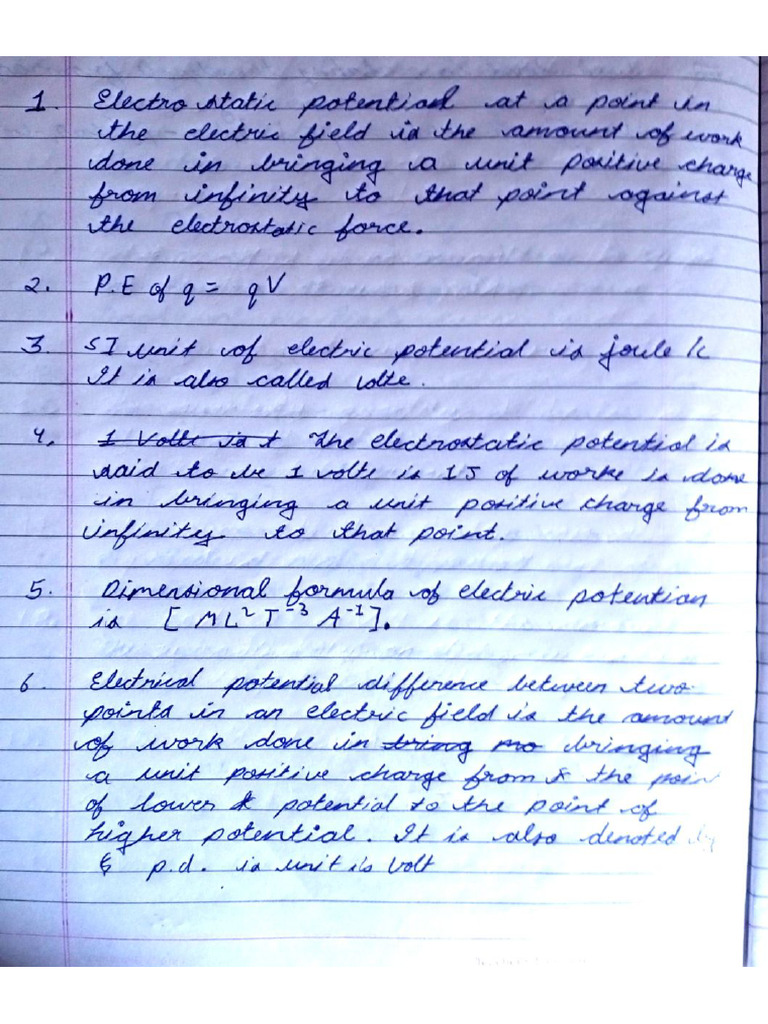 1. Electrostatic potential at a point in
the electric field is the amount of work
done in bringing a unit positive charge
from infinity to that point against
the electrostatic force.
2. P.E of q = qV
3. SI unit of electric potential is joule/c
It is also called volte.
4. 1 Volte is t The electrostatic potential is
said to be 1 volte is 1J of worke is done
in bringing a unit positive charge from
infinity to that point.
5. Dimensional formula of electric potention
is [ML²T⁻³A⁻¹].
6. Electrical potential difference between two
points in an electric field is the amount
of work done in bring mo bringing
a unit positive charge from the poin
of lower potential to the point of
higher potential. It is also denoted by
p.d. is unit is Volt